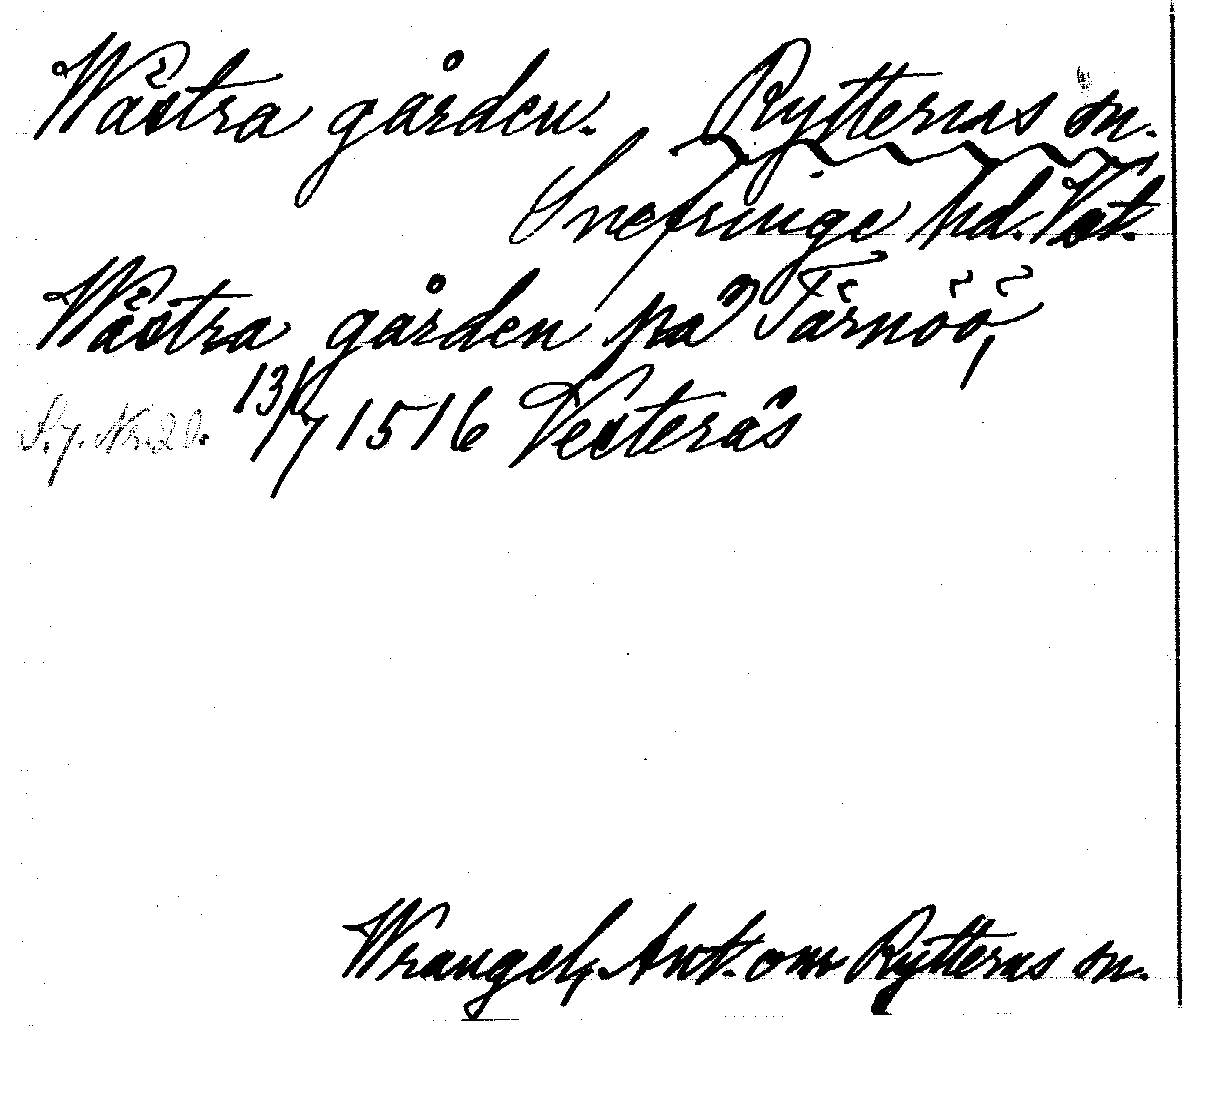 Wästra gården. Rytterns sn.
Snefringe hd. Vst.
Wästra gården på Tärnöö,
S. 7. Nr. 20. 13/7 1516 Vesterås
Wrangel, Ant. om Rytterns sn.